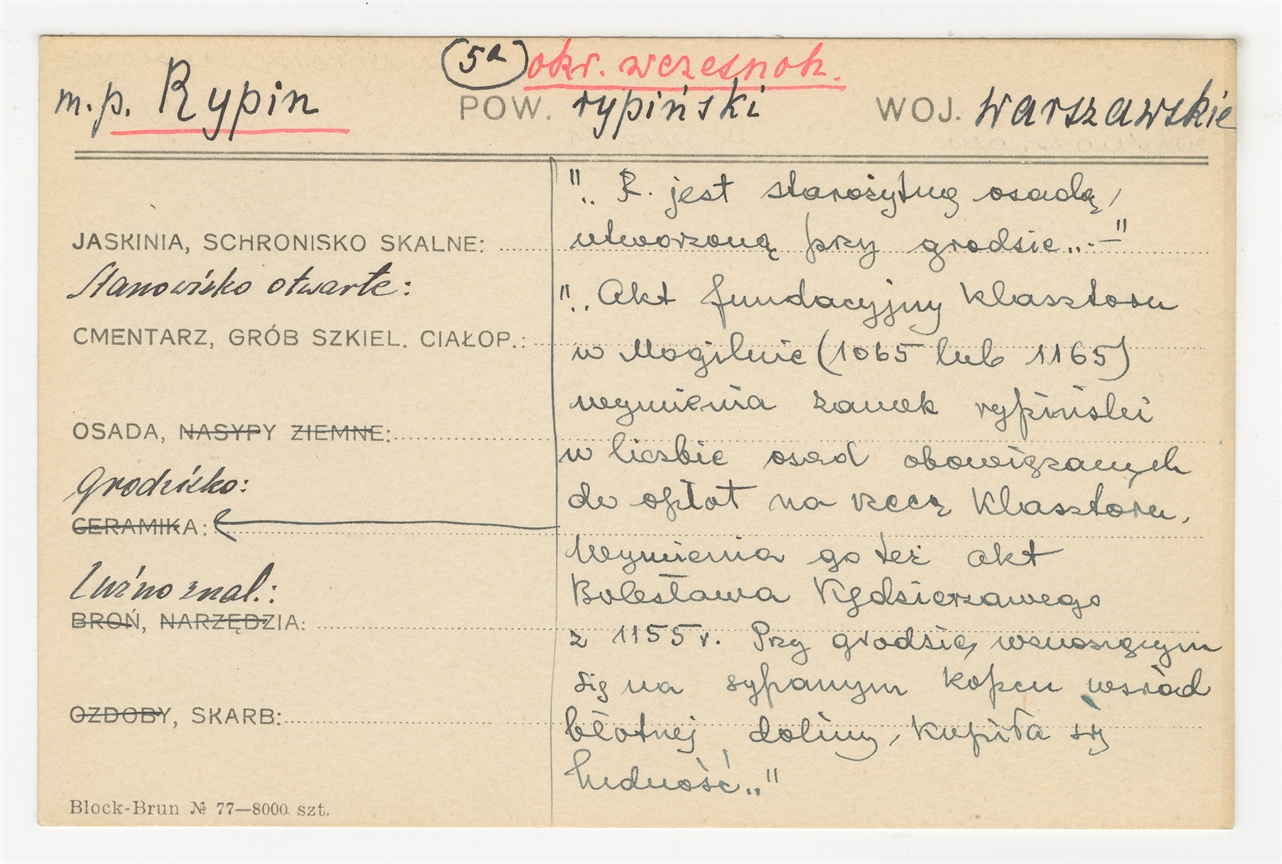 (5a) okr. wczesnoh.
m.p. Rypin POW. rypiński WOJ. warszawskie
".. R. jest starożytną osadą,
JASKINIA, SCHRONISKO SKALNE: utworzoną przy grodzie..–"
Stanowisko otwarte: ".. Akt fundacyjny klasztoru
CMENTARZ, GRÓB SZKIEL. CIAŁOP.: w Mogilnie (1065 lub 1165)
wymienia zamek rypiński
OSADA, NASYPY ZIEMNE: w liczbie osad obowiązanych
Grodzisko: do opłat na rzecz klasztoru.
CERAMIKA:
Wymienia go też akt
Luźno znal.: Bolesława Kędzierzawego
BROŃ, NARZĘDZIA: z 1155 r. Przy grodzie, wznoszącym
się na sypanym kopcu wśród
OZDOBY, SKARB: błotnej doliny, kupiła się
ludność.."
Block-Brun № 77—8000 szt.